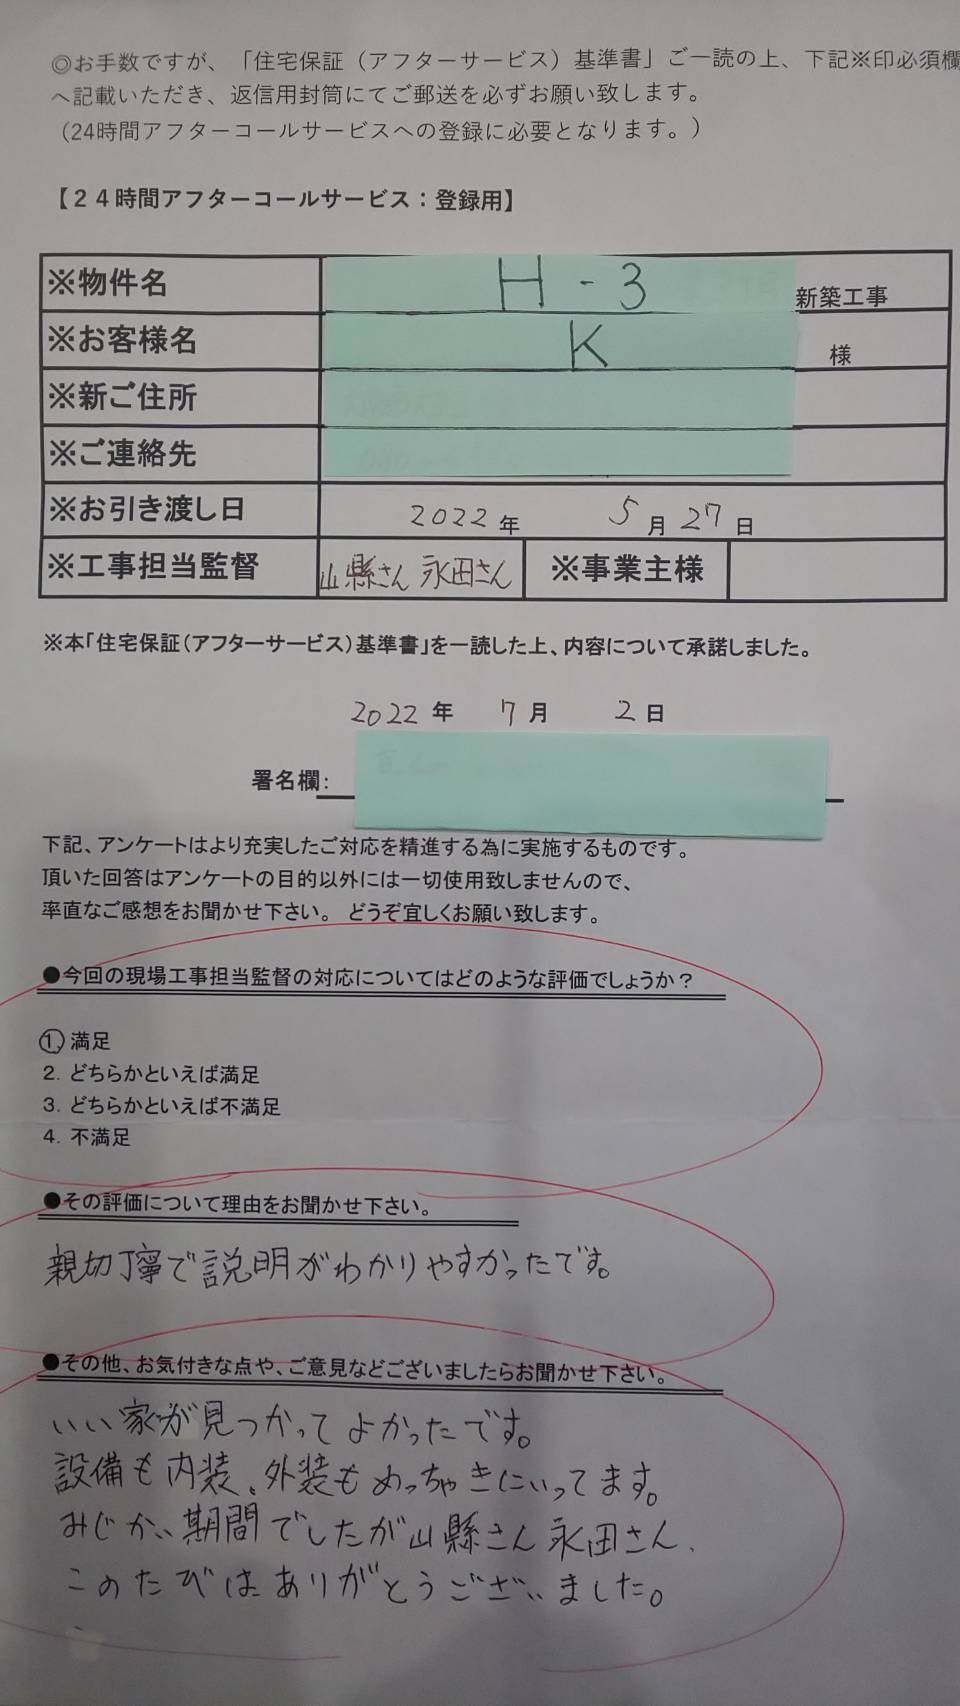 ◎お手数ですが、「住宅保証（アフターサービス）基準書」ご一読の上、下記※印必須欄
へ記載いただき、返信用封筒にてご郵送を必ずお願い致します。
（24時間アフターコールサービスへの登録に必要となります。）
【２４時間アフターコールサービス：登録用】
※物件名 H-3 新築工事
※お客様名 K 様
※新ご住所
※ご連絡先
※お引き渡し日 2022年 5月27日
※工事担当監督 山縣さん 永田さん ※事業主様
※本「住宅保証（アフターサービス）基準書」を一読した上、内容について承諾しました。
2022年 7月 2日
署名欄：
下記、アンケートはより充実したご対応を精進する為に実施するものです。
頂いた回答はアンケートの目的以外には一切使用致しませんので、
率直なご感想をお聞かせ下さい。 どうぞ宜しくお願い致します。
●今回の現場工事担当監督の対応についてはどのような評価でしょうか？
1. 満足
2. どちらかといえば満足
3. どちらかといえば不満足
4. 不満足
●その評価について理由をお聞かせ下さい。
親切丁寧で説明がわかりやすかったです。
●その他、お気付きな点や、ご意見などございましたらお聞かせ下さい。
いい家が見つかってよかったです。
設備も内装、外装もめっちゃきにいってます。
みじかい期間でしたが山縣さん永田さん、
このたびはありがとうございました。